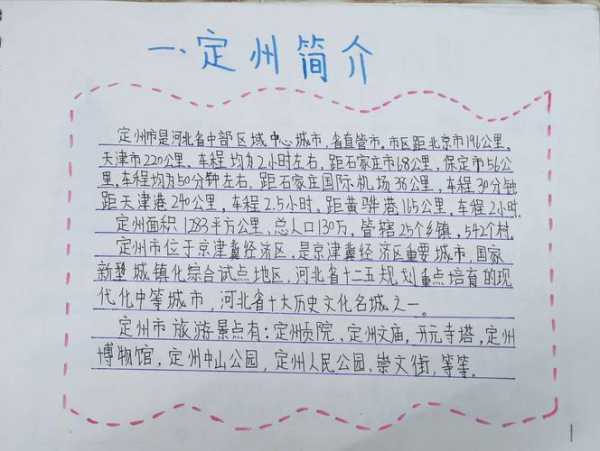 一、定州简介
定州市是河北省中部区域中心城市，省直管市，市区距北京市196公里，
天津市220公里，车程均为2小时左右，距石家庄市68公里，保定市56公
里，车程均为50分钟左右，距石家庄国际机场38公里，车程30分钟
距天津港240公里，车程2.5小时，距黄骅港165公里，车程2小时。
定州面积1283平方公里，总人口130万，管辖25个乡镇，542个村。
定州市位于京津冀经济区，是京津冀经济区重要城市，国家
新型城镇化综合试点地区，河北省十二五规划重点培育的现
代化中等城市，河北省十大历史文化名城之一。
定州市旅游景点有：定州贡院、定州文庙，开元寺塔，定州
博物馆，定州中山公园，定州人民公园、崇文街，等等。